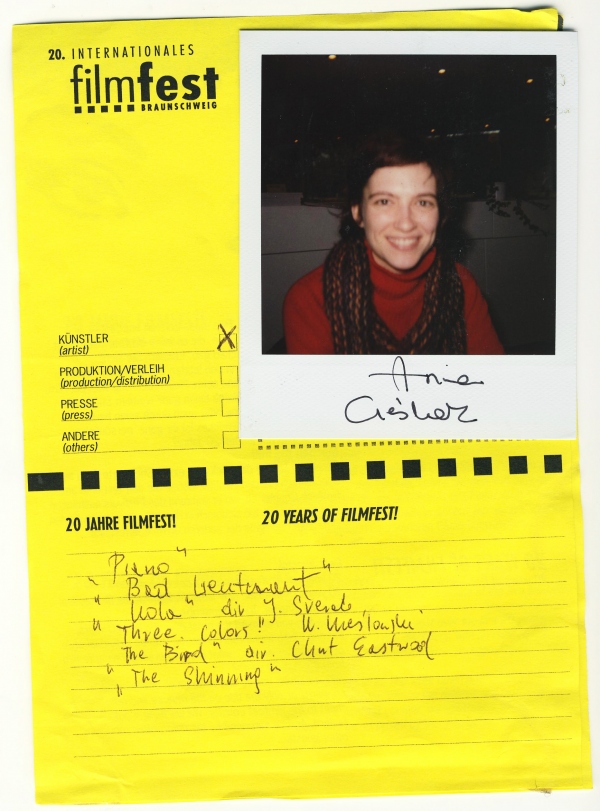 20. INTERNATIONALES
filmfest
BRAUNSCHWEIG
KÜNSTLER
(artist)
X
PRODUKTION/VERLEIH
(production/distribution)
PRESSE
(press)
ANDERE
(others)
20 JAHRE FILMFEST!
20 YEARS OF FILMFEST!
Piano"
"Bad Lieutenant"
"Kola" div J. Sverak
"Three Colors!" K. Kieślowski
The Bird" dir. Clint Eastwood
"The Shinning"